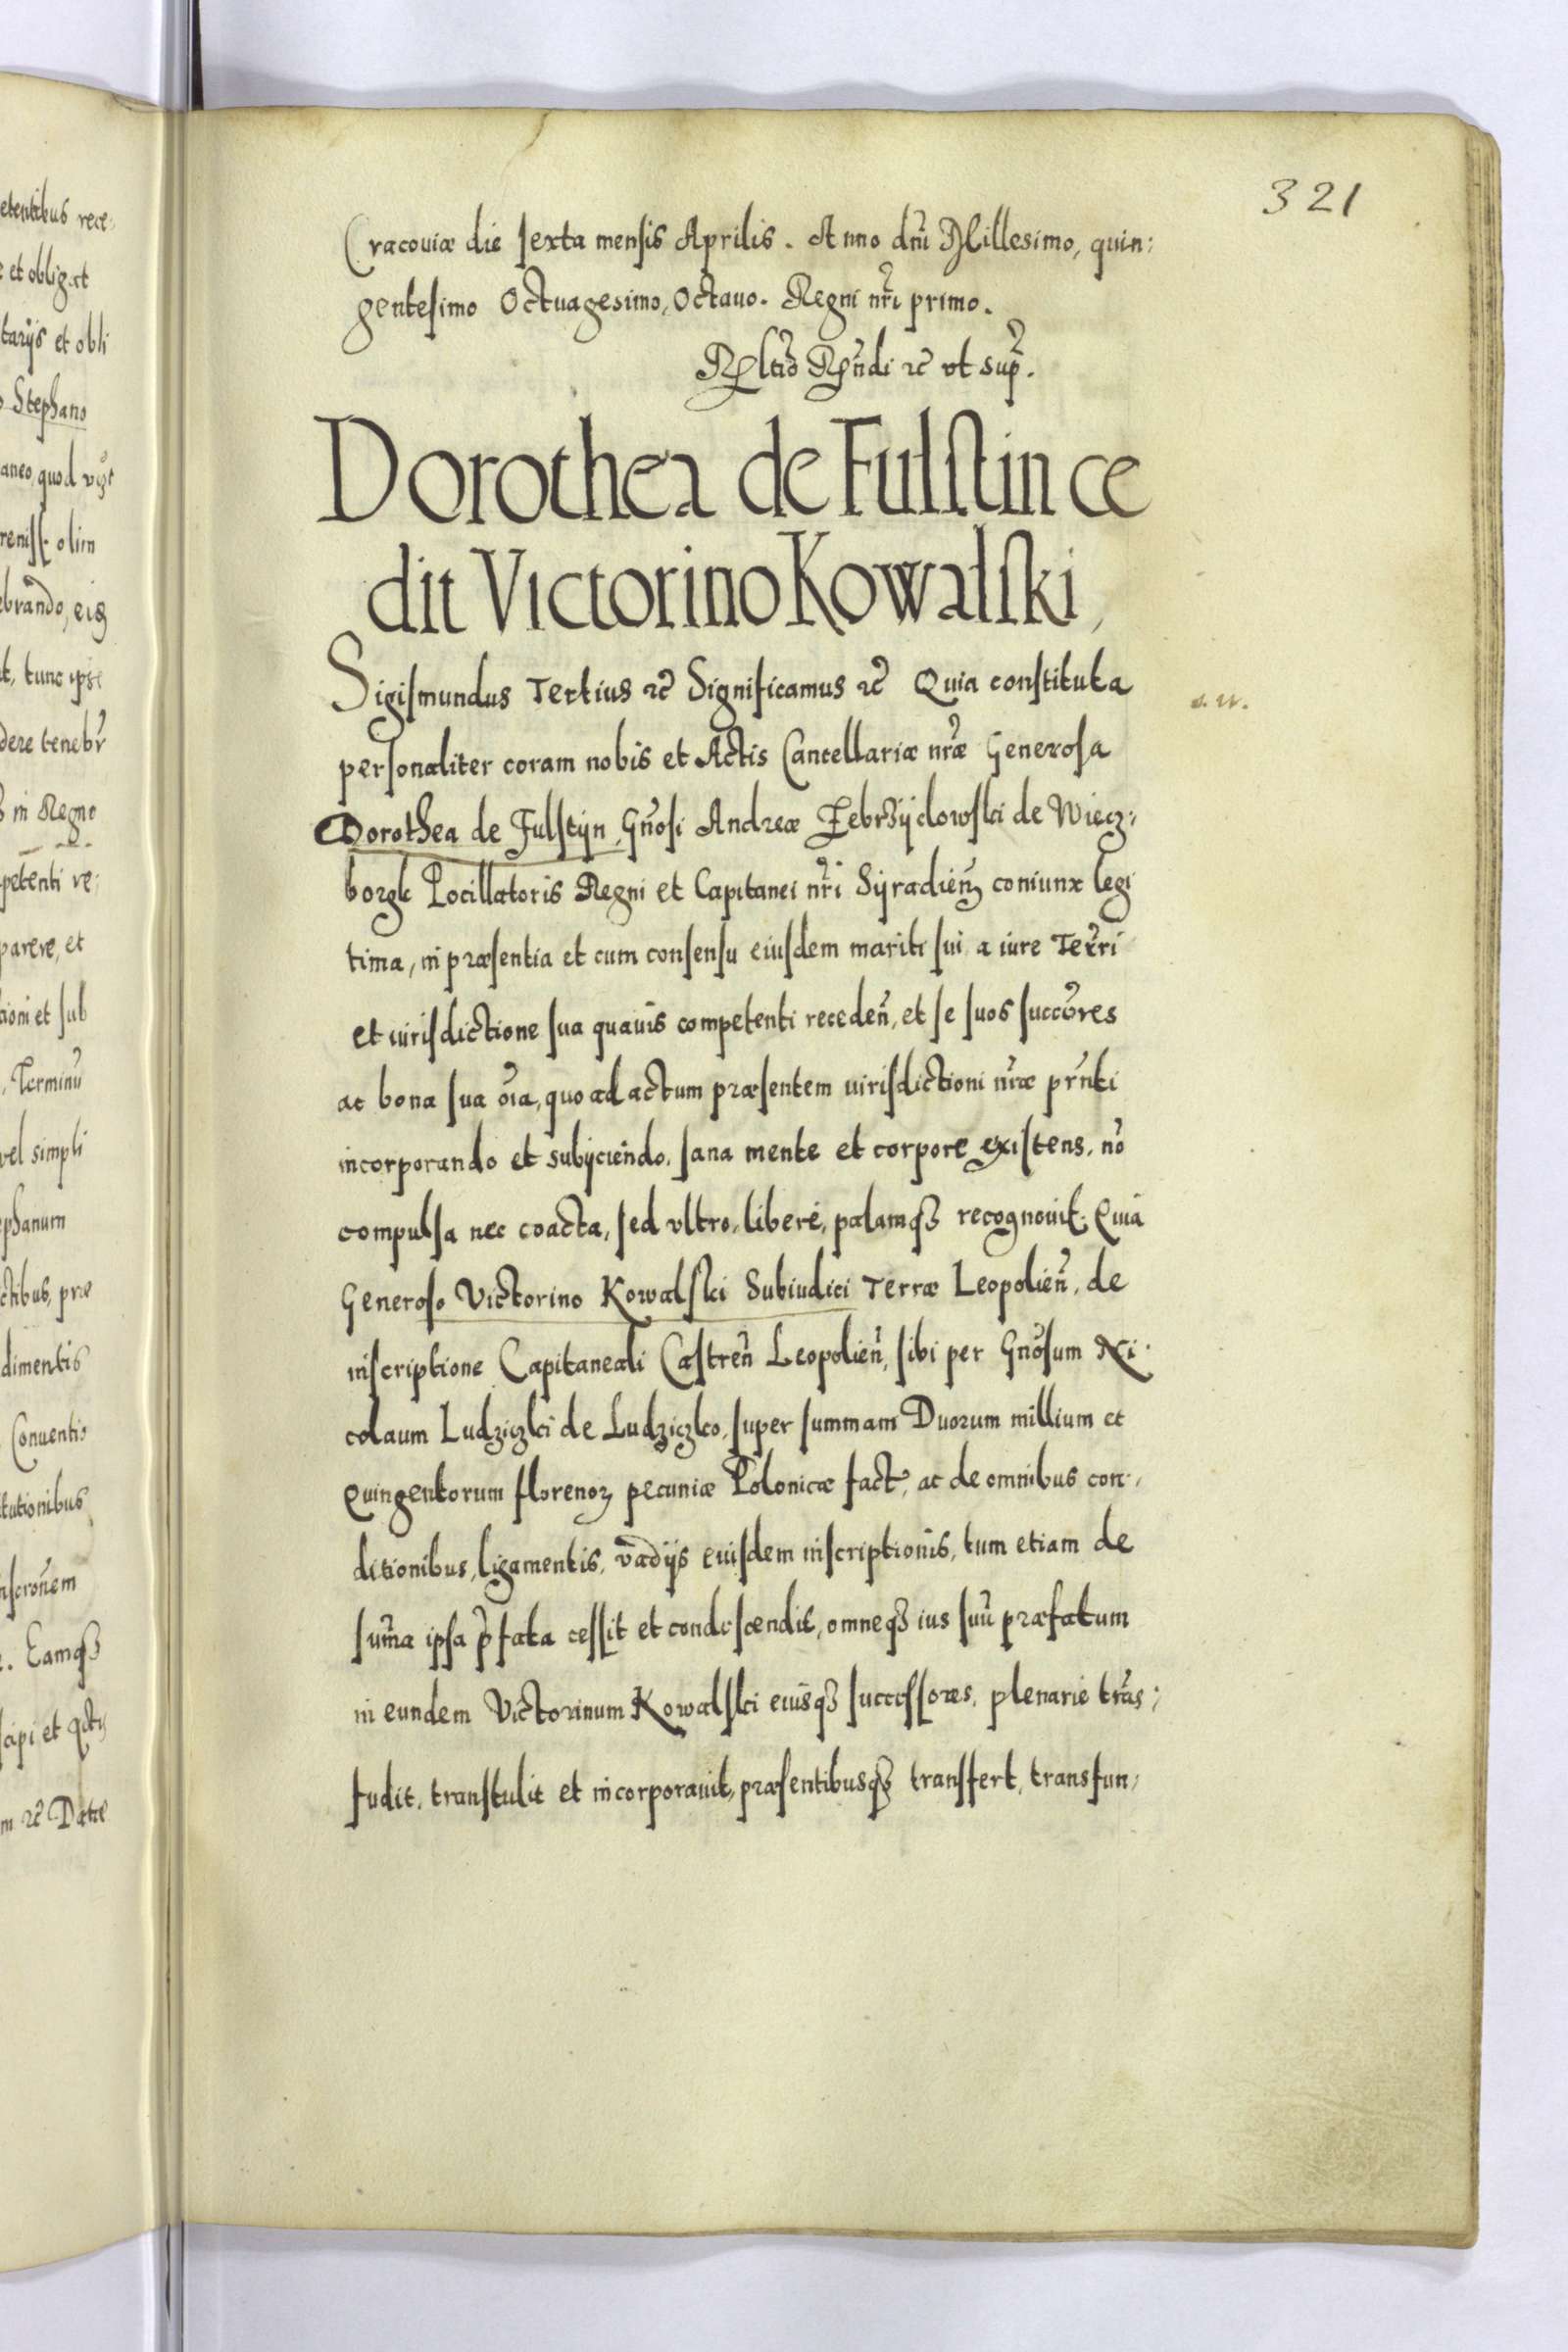 321
Cracouiæ die sexta mensis Aprilis. Anno dni Millesimo, quin:
gentesimo Octuagesimo, Octauo. Regni nri primo.
Rltio Rndi rc vt sup.
Dorothea de Fulstin ce
dit Victorino Kowalski,
Sigismundus Tertius rc Significamus rc Quia constituta
personaliter coram nobis et Actis Cancellariæ nræ Generosa
Dorothea de Fulstyn, Gnosi Andreæ Zebrzÿdowski de Wiecz:
borgk Pocillatoris Regni et Capitanei nri Syradien coniunx legi
tima, in præsentia et cum consensu eiusdem mariti sui a iure Terri
et iurisdictione sua quauis competenti receden, et se suos succres
ac bona sua oia, quo ad actum præsentem iurisdictioni nræ prnti
incorporando et subijciendo, sana mente et corpore existens, no
compulsa nec coacta, sed vltro, liberè, palamq3 recognouit. Quia
Generoso Victorino Kowalski Subiudici Terræ Leopolien, de
inscriptione Capitaneali Castren Leopolien, sibi per Gnosum Ni:
colaum Ludziczki de Ludziczko, super summam Duorum millium et
Quingentorum florenoꝝ pecuniæ Polonicæ fact, ac de omnibus con:
ditionibus, ligamentis, vadijs eiusdem inscriptionis, tum etiam de
suma ipsa pfata cessit et condescendit, omneq3 ius suu præfatum
in eundem Victorinum Kowalski eiusq3 successores, plenarie tras:
fudit, transtulit et incorporauit, præsentibusq3 transfert, transfun:
etentibus rece:
et oblig.et
tarijs et obli
Stephano
aneo, quod
reniss. olim
ebrando, eiꝗ
t, tunc ipse
dere tenebr
in Regno
petenti re:
parere, et
ioni et sub
Terminu
vel simpli
ephanum
ctibus, præ
dimentis
Conuentis
tutionibus
nscronem
. Eamq3
m rc Datæ